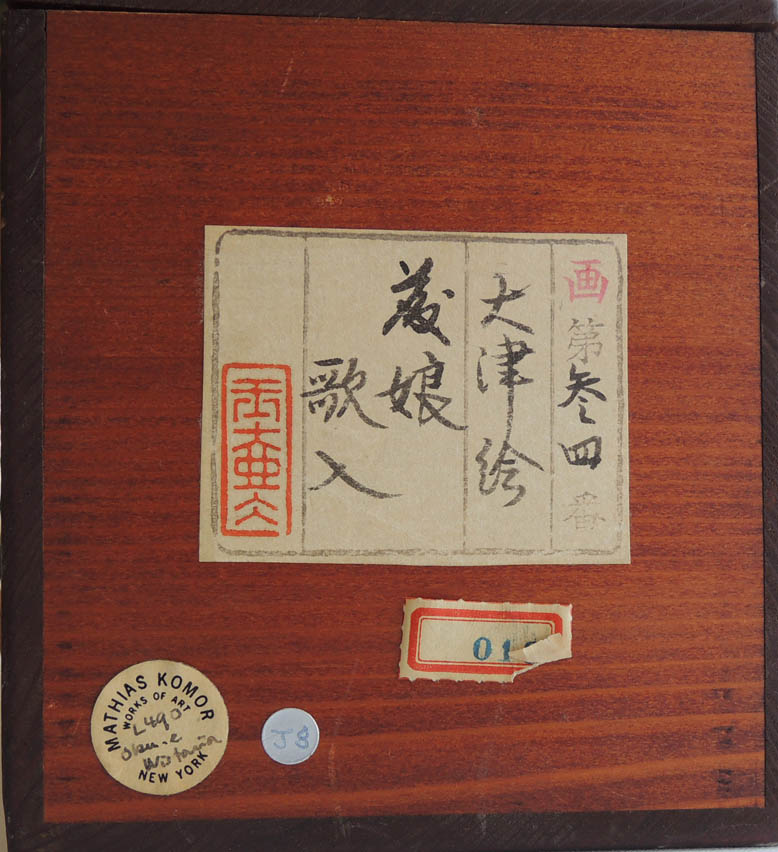 画第参四番
大津絵
藤娘
歌入
01
MATHIAS KOMOR
WORKS OF ART
L490
NEW YORK
J8